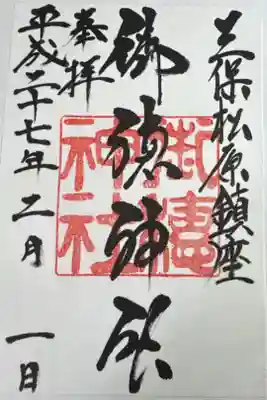 三保松原鎮座
御穂神社
奉拝
平成二十七年二月一日
御穂神社